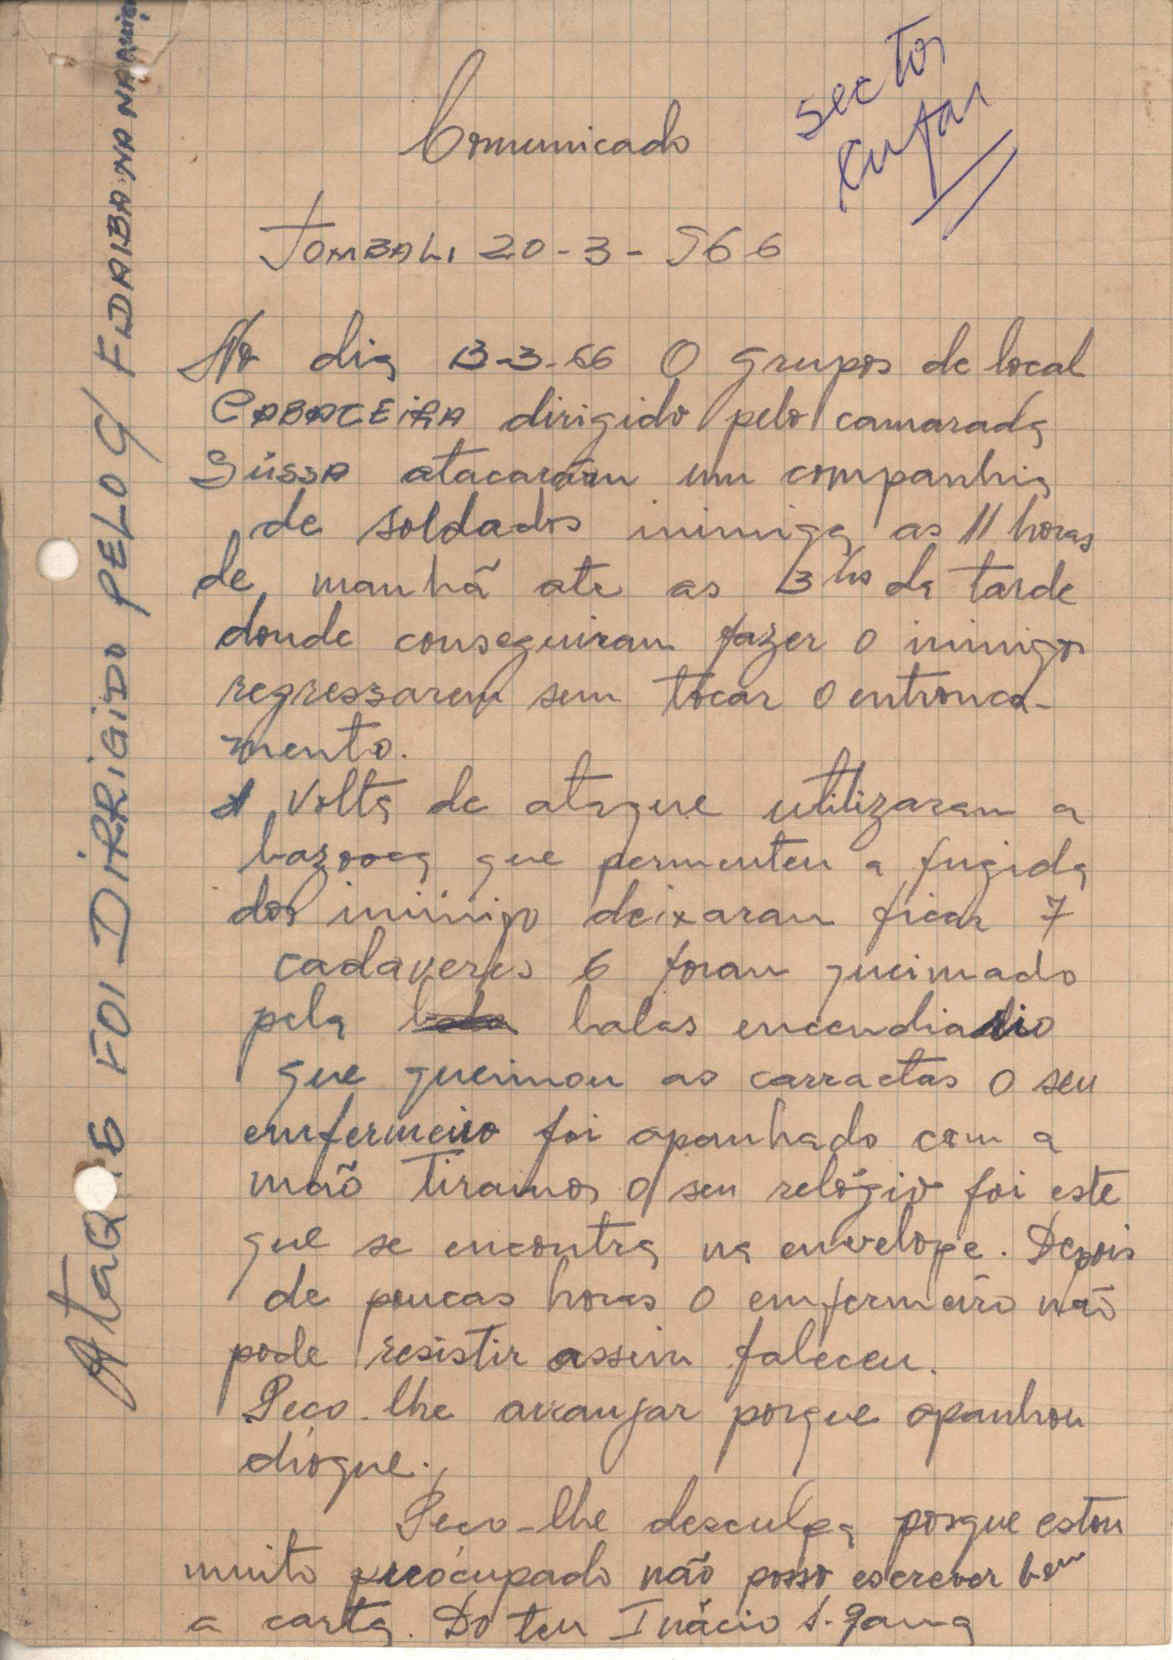 sector
Cufar
Comunicado
TOMBALI 20-3-966
No dia 13-3-66 O grupos de local
CABACEIRA dirigido pelo camarada
SÚSSA atacaram um companhia
de soldados inimiga as 11 horas
de manhã ate as 3 hs da tarde
donde conseguiram fazer o inimigos
regressarem sem tocar o entronca-
mento.
A volta de ataque utilizaram a
bazooca que permenteu a fugida
dos inimigo deixaram ficar 7
cadaveres 6 foram queimado
pela balas encendiario
que queimou as carractas O seu
emfermeiro foi apanhado com a
mão Tiramos o seu relógio foi este
que se encontra na envelope. Depois
de poucas horas O emfermeiro não
pode resistir assim faleceu.
Peço-lhe arranjar porque apanhou
choque.
Peço-lhe desculpa porque estou
muito preócupado não posso escrever bem
a carta. Do teu Inácio S. Gama
ATAQUE FOI DIRRIGIDO PELO C/ FIDAIBA NA